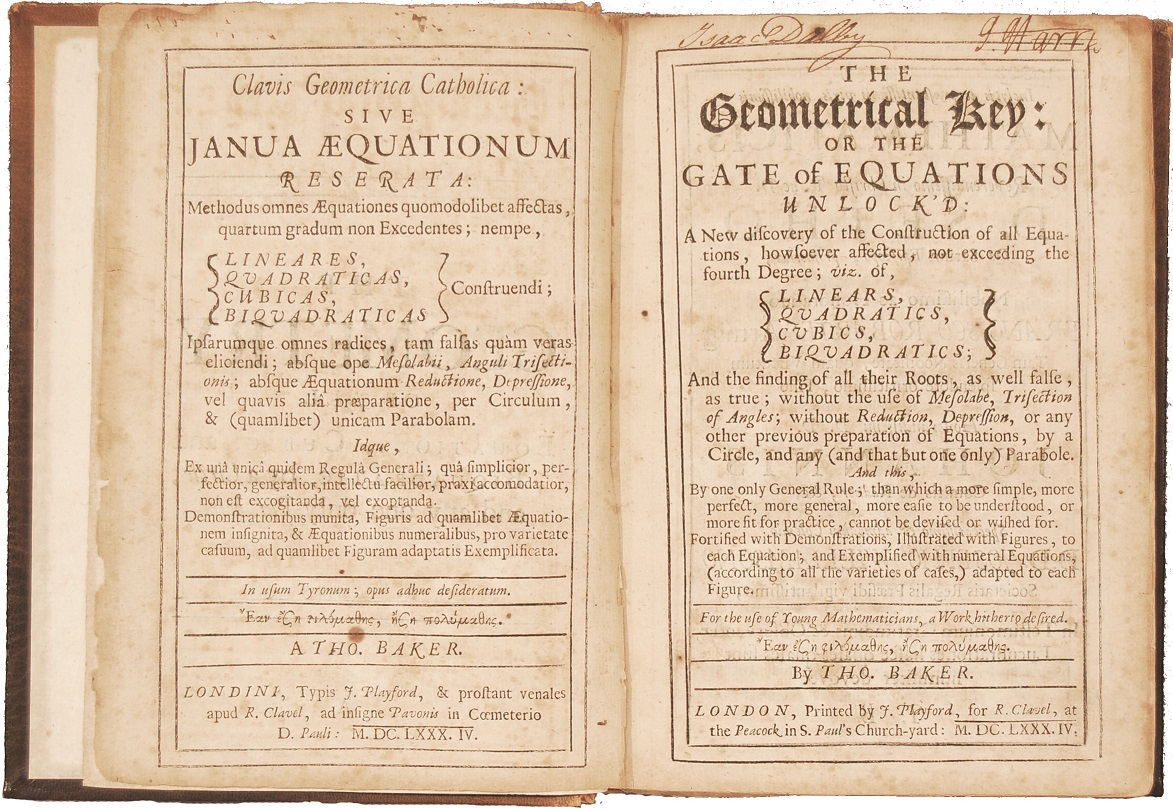 Clavis Geometrica Catholica:
SIVE
JANUA ÆQUATIONUM
RESERATA:
Methodus omnes Æquationes quomodolibet affectas,
quartum gradum non Excedentes; nempe,
LINEARES,
QVADRATICAS,
CUBICAS,
BIQVADRATICAS
Construendi;
Ipſarumque omnes radices, tam falſas quàm veras
eliciendi; abſque ope Meſolabii, Anguli Triſecti-
onis; abſque Æquationum Reductione, Depreſſione,
vel quavis aliâ præparatione, per Circulum,
& (quamlibet) unicam Parabolam.
Idque,
Ex unâ unicâ quidem Regulâ Generali; quâ ſimplicior, per-
fectior, generalior, intellectu facilior, praxi accomodatior,
non eſt excogitanda, vel exoptanda.
Demonſtrationibus munita, Figuris ad quamlibet Æquatio-
nem inſignita, & Æquationibus numeralibus, pro varietate
caſuum, ad quamlibet Figuram adaptatis Exemplificata.
In uſum Tyronum; opus adhuc deſideratum.
Ἔαν ἔζῃ φιλόμαθης, ἥζῃ πολύμαθης.
A THO. BAKER.
LONDINI, Typis J. Playford, & proſtant venales
apud R. Clavel, ad inſigne Pavonis in Cœmeterio
D. Pauli: M. DC. LXXX. IV.
Isaac Dalby
THE
Geometrical Key:
OR THE
GATE of EQUATIONS
UNLOCK'D:
A New diſcovery of the Conſtruction of all Equa-
tions, howſoever affected, not exceeding the
fourth Degree; viz. of,
LINEARS,
QVADRATICS,
CVBICS,
BIQVADRATICS;
And the finding of all their Roots, as well falſe,
as true; without the uſe of Meſolabe, Triſection
of Angles; without Reduction, Depreſſion, or any
other previous preparation of Equations, by a
Circle, and any (and that but one only) Parabole.
And this,
By one only General Rule; than which a more ſimple, more
perfect, more general, more eaſie to be underſtood, or
more fit for practice, cannot be deviſed or wiſhed for.
Fortified with Demonſtrations, Illuſtrated with Figures, to
each Equation; and Exemplified with numeral Equations,
(according to all the varieties of caſes,) adapted to each
Figure.
For the uſe of Young Mathematicians, a Work hitherto deſired.
Ἔαν ἔζῃ φιλόμαθης, ἥζῃ πολύμαθης.
By THO. BAKER.
LONDON, Printed by J. Playford, for R. Clavel, at
the Peacock in S. Paul's Church-yard: M. DC. LXXX. IV.